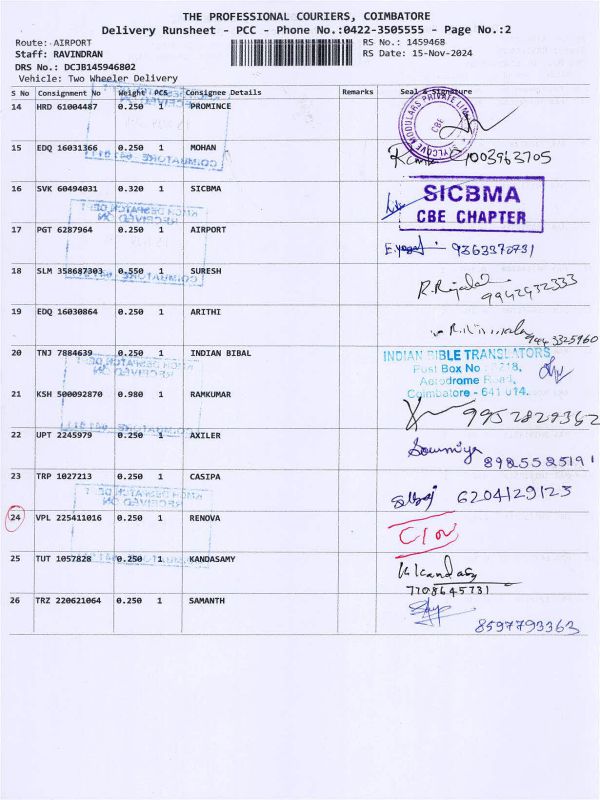 THE PROFESSIONAL COURIERS, COIMBATORE
Delivery Runsheet - PCC - Phone No.:0422-3505555 - Page No.:2
Route: AIRPORT
RS No.: 1459468
Staff: RAVINDRAN
RS Date: 15-Nov-2024
DRS No.: DCJB145946802
Vehicle: Two Wheeler Delivery
S No Consignment No Weight PCS Consignee Details Remarks Seal & Signature
14 HRD 61004487 0.250 1 PROMINCE
CBE
15 EDQ 16031366 0.250 1 MOHAN
16 SVK 60494031 0.320 1 SICBMA
SICBMA
CBE CHAPTER
17 PGT 6287964 0.250 1 AIRPORT
18 SLM 358687303 0.550 1 SURESH
9942932333
19 EDQ 16030864 0.250 1 ARITHI
20 TNJ 7884639 0.250 1 INDIAN BIBAL
INDIAN BIBLE TRANSLATORS
Post Box No
Aerodrome Road,
Coimbatore - 641 014.
21 KSH 500092870 0.980 1 RAMKUMAR
9952829362
22 UPT 2245979 0.250 1 AXILER
Soumiya
8925525191
23 TRP 1027213 0.250 1 CASIPA
6204129123
24 VPL 225411016 0.250 1 RENOVA
25 TUT 1057828 0.250 1 KANDASAMY
7708645731
26 TRZ 220621064 0.250 1 SAMANTH
8597793363